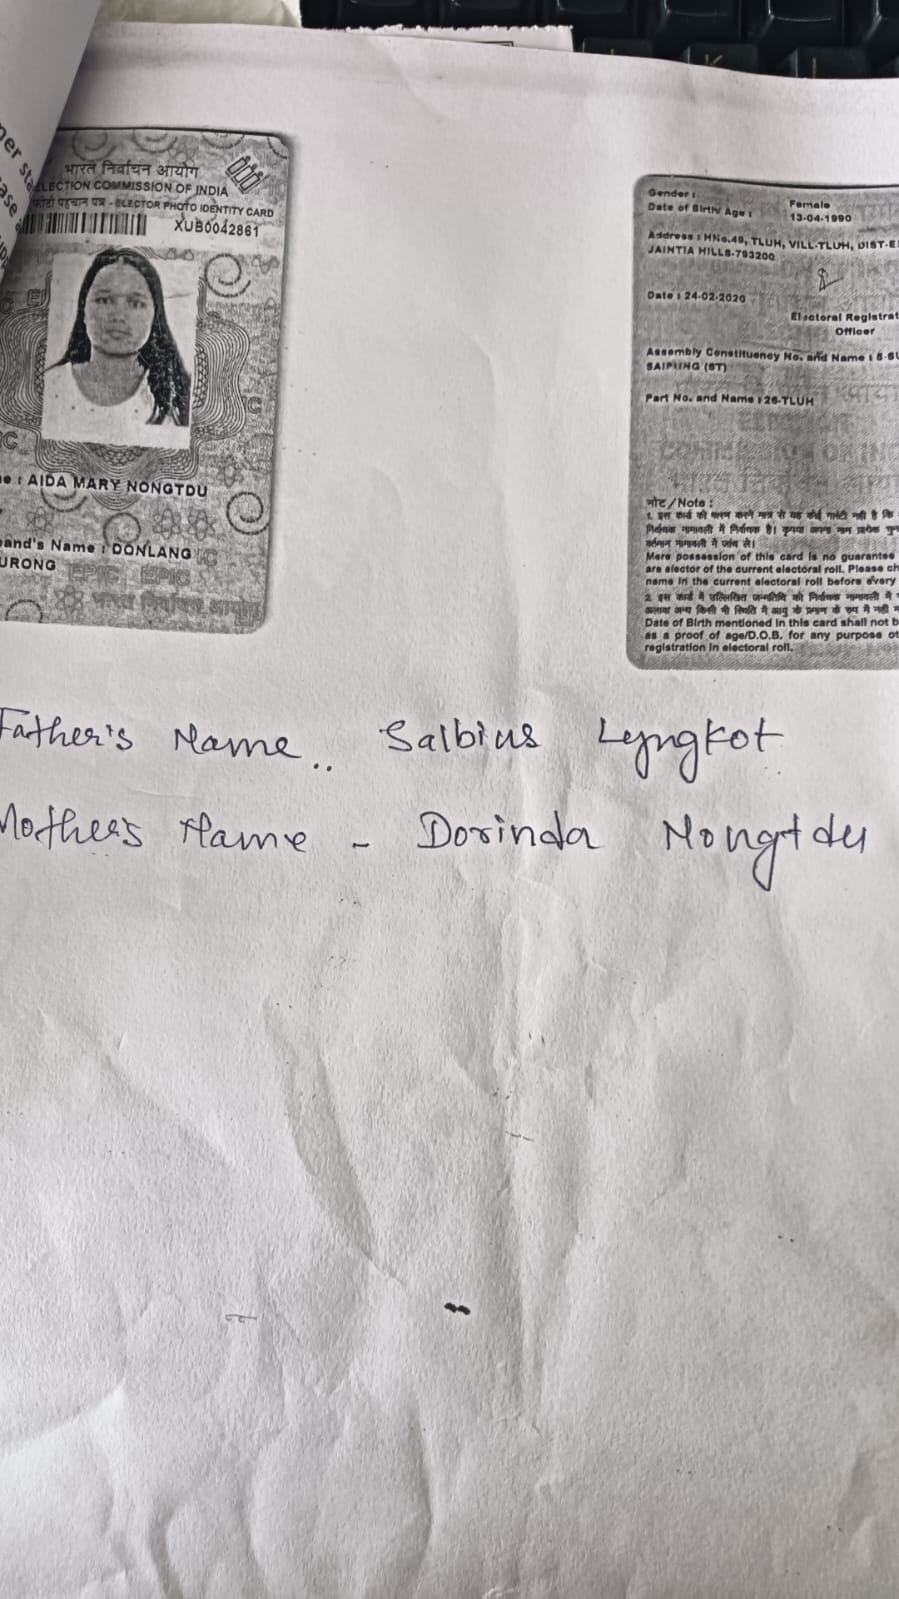 भारत निर्वाचन आयोग
ELECTION COMMISSION OF INDIA
पहचान पत्र - ELECTOR PHOTO IDENTITY CARD
XUB0042861
: AIDA MARY NONGTDU
and's Name : DONLANG
URONG
EPIC EPIC
भारत निर्वाचन आयोग
Gender :
Female
Date of Birth/ Age :
13-04-1990
Address : HNo.49, TLUH, VILL-TLUH, DIST-E
JAINTIA HILLS-793200
Date : 24-02-2020
Electoral Registrat
Officer
Assembly Constituency No. and Name : 5-SU
SAIPUNG (ST)
Part No. and Name : 26-TLUH
नोट/Note :
1. इस कार्ड को धारण करने मात्र से यह कोई गारंटी नही है कि
निर्वाचक नामावली में निर्वाचक है। कृपया अपना नाम प्रत्येक चुन
वर्तमान नामावली में जांच ले।
Mere possession of this card is no guarantee
are elector of the current electoral roll. Please ch
name in the current electoral roll before every
2. इस कार्ड में उल्लिखित जन्मतिथि को निर्वाचक नामावली में
अलावा अन्य किसी भी स्थिति में आयु के प्रमाण के रुप में नही
Date of Birth mentioned in this card shall not b
as a proof of age/D.O.B. for any purpose ot
registration in electoral roll.
Father's Name.. Salbius Lyngkot
Mother's Name - Dorinda Nongtdu